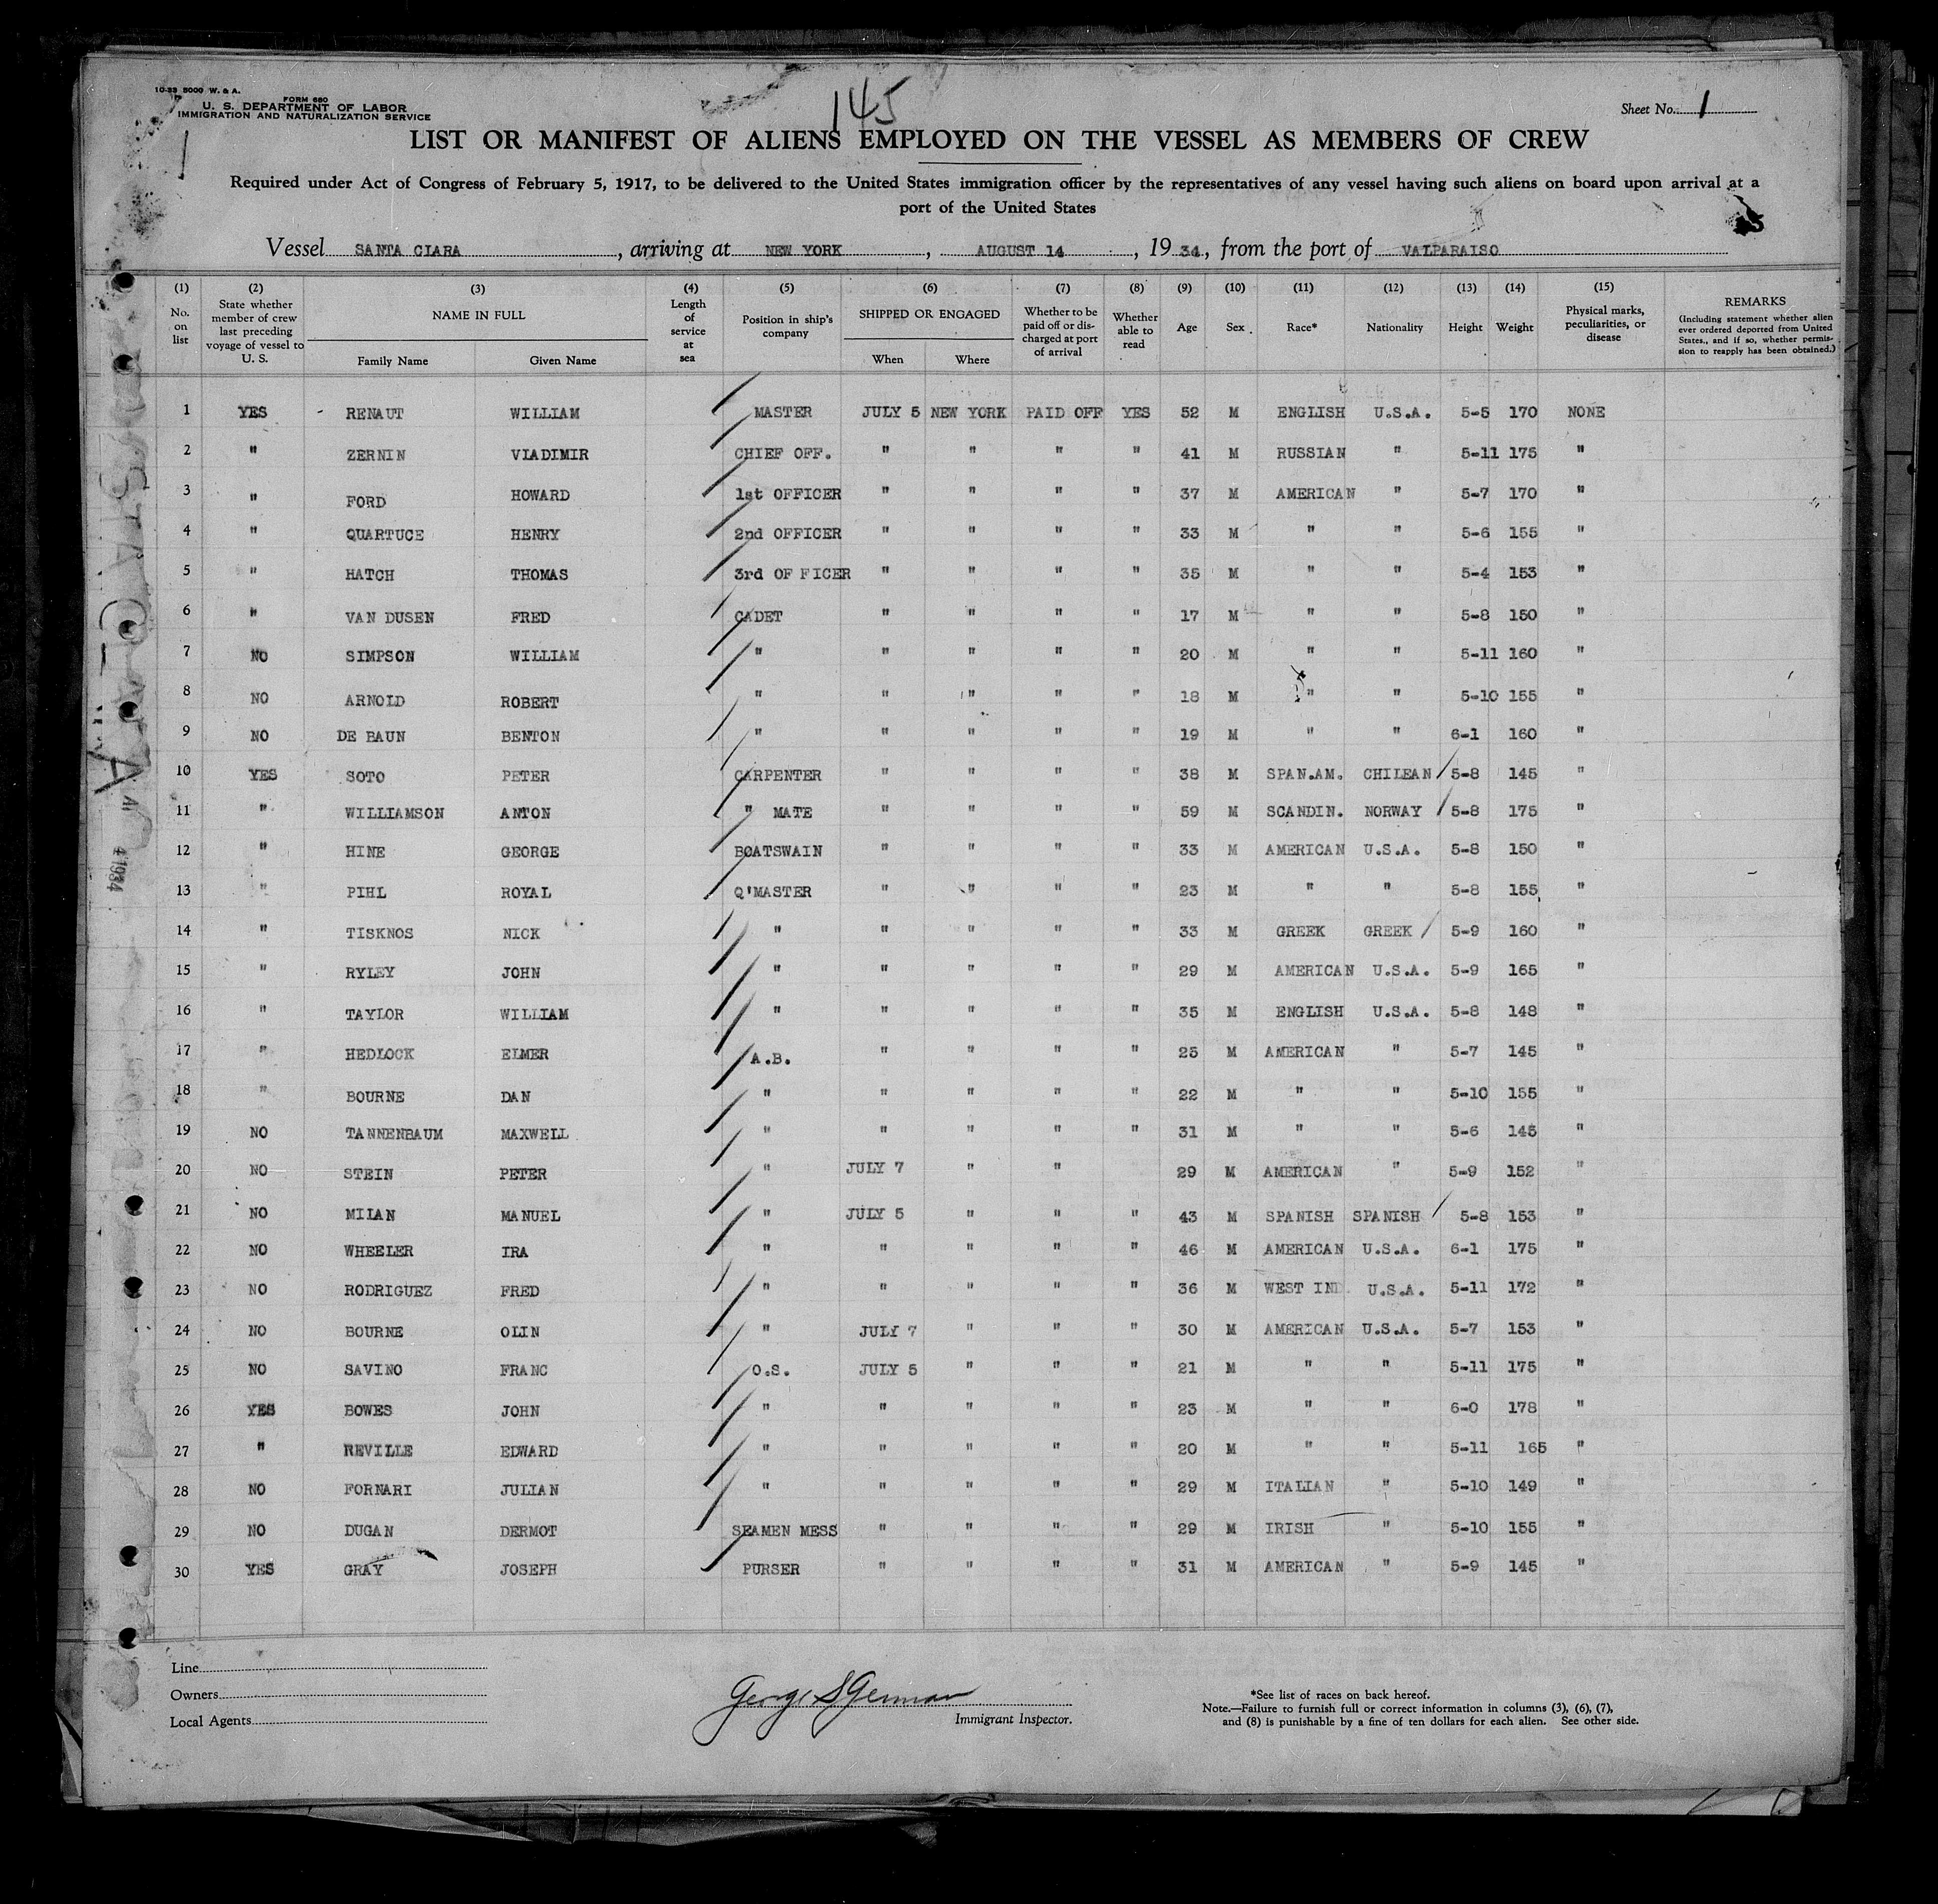 10-33 5000 W. & A.
FORM 680
U. S. DEPARTMENT OF LABOR
IMMIGRATION AND NATURALIZATION SERVICE
145
Sheet No. 1
1
LIST OR MANIFEST OF ALIENS EMPLOYED ON THE VESSEL AS MEMBERS OF CREW
Required under Act of Congress of February 5, 1917, to be delivered to the United States immigration officer by the representatives of any vessel having such aliens on board upon arrival at a
port of the United States
Vessel SANTA CLARA, arriving at NEW YORK, AUGUST 14, 1934, from the port of VALPARAISO
(1) (2) (3) (4) (5) (6) (7) (8) (9) (10) (11) (12) (13) (14) (15)
No. on list State whether member of crew last preceding voyage of vessel to U. S. NAME IN FULL Family Name Given Name Length of service at sea Position in ship's company SHIPPED OR ENGAGED When Where Whether to be paid off or discharged at port of arrival Whether able to read Age Sex Race* Nationality Height Weight Physical marks, peculiarities, or disease REMARKS (Including statement whether alien ever ordered deported from United States., and if so, whether permission to reapply has been obtained.)
1 YES RENAUT WILLIAM MASTER JULY 5 NEW YORK PAID OFF YES 52 M ENGLISH U.S.A. 5-5 170 NONE
2 " ZERNIN VLADIMIR CHIEF OFF. " " " " 41 M RUSSIAN " 5-11 175 "
3 " FORD HOWARD 1st OFFICER " " " " 37 M AMERICAN " 5-7 170 "
4 " QUARTUCE HENRY 2nd OFFICER " " " " 33 M " " 5-6 155 "
5 " HATCH THOMAS 3rd OF FICER " " " " 35 M " " 5-4 153 "
6 " VAN DUSEN FRED CADET " " " " 17 M " " 5-8 150 "
7 NO SIMPSON WILLIAM " " " " " 20 M " " 5-11 160 "
8 NO ARNOLD ROBERT " " " " " 18 M " " 5-10 155 "
9 NO DE BAUN BENTON " " " " " 19 M " " 6-1 160 "
10 YES SOTO PETER CARPENTER " " " " 38 M SPAN.AM. CHILEAN 5-8 145 "
11 " WILLIAMSON ANTON " MATE " " " " 59 M SCANDIN. NORWAY 5-8 175 "
12 " HINE GEORGE BOATSWAIN " " " " 33 M AMERICAN U.S.A. 5-8 150 "
13 " PIHL ROYAL Q'MASTER " " " " 23 M " " 5-8 155 "
14 " TISKNOS NICK " " " " " 33 M GREEK GREEK 5-9 160 "
15 " RYLEY JOHN " " " " " 29 M AMERICAN U.S.A. 5-9 165 "
16 " TAYLOR WILLIAM " " " " " 35 M ENGLISH U.S.A. 5-8 148 "
17 " HEDLOCK ELMER A.B. " " " " 25 M AMERICAN " 5-7 145 "
18 " BOURNE DAN " " " " " 22 M " " 5-10 155 "
19 NO TANNENBAUM MAXWELL " " " " " 31 M " " 5-6 145 "
20 NO STEIN PETER " JULY 7 " " 29 M AMERICAN " 5-9 152 "
21 NO MILAN MANUEL " JULY 5 " " " 43 M SPANISH SPANISH 5-8 153 "
22 NO WHEELER IRA " " " " " 46 M AMERICAN U.S.A. 6-1 175 "
23 NO RODRIGUEZ FRED " " " " " 36 M WEST IND. U.S.A. 5-11 172 "
24 NO BOURNE OLIN " JULY 7 " " " 30 M AMERICAN U.S.A. 5-7 153 "
25 NO SAVINO FRANC O.S. JULY 5 " " " 21 M " " 5-11 175 "
26 YES BOWES JOHN " " " " " 23 M " " 6-0 178 "
27 " REVILLE EDWARD " " " " " 20 M " " 5-11 165 "
28 NO FORNARI JULIAN " " " " " 29 M ITALIAN " 5-10 149 "
29 NO DUGAN DERMOT SEAMEN MESS " " " " 29 M IRISH " 5-10 155 "
30 YES GRAY JOSEPH PURSER " " " " 31 M AMERICAN " 5-9 145 "
Line
Owners
Local Agents
George S German
Immigrant Inspector.
*See list of races on back hereof.
Note.—Failure to furnish full or correct information in columns (3), (6), (7),
and (8) is punishable by a fine of ten dollars for each alien. See other side.